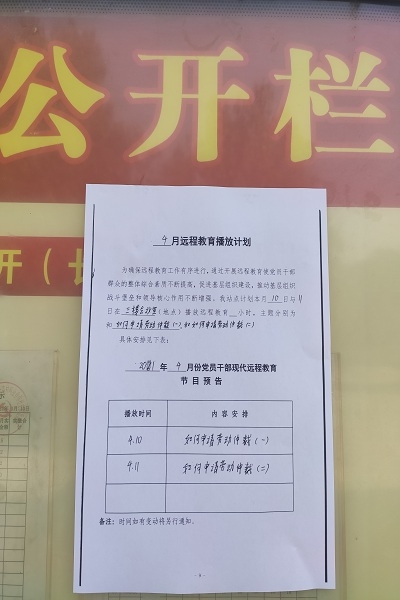 公开栏
开(
4月远程教育播放计划
为确保远程教育工作有序进行，通过开展远程教育使党员干部
群众的整体综合素质不断提高，促进基层组织建设，推动基层组织
战斗堡垒和领导核心作用不断增强。我站点计划本月10日与11
日在三楼会议室(地点)播放远程教育__小时。主题分别为
和如何申请劳动仲裁(一)和如何申请劳动仲裁(二)
具体安排见下表：
2021年4月份党员干部现代远程教育
节目预告
播放时间 内容安排
4.10 如何申请劳动仲裁(一)
4.11 如何申请劳动仲裁(二)
备注：时间如有变动将另行通知。